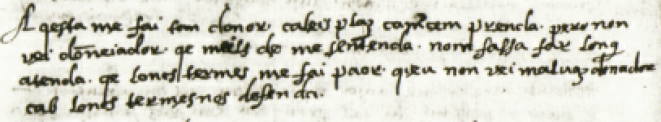 A qesta me fai son donor. caleis plaz camcem prenda. pero non
vei domneiador. qe meills de me sentenda. nom fassa far long
atenda. qe loncs termes me fai paor. qeu non vei maluaz donador
cab loncs termes nos defenda.